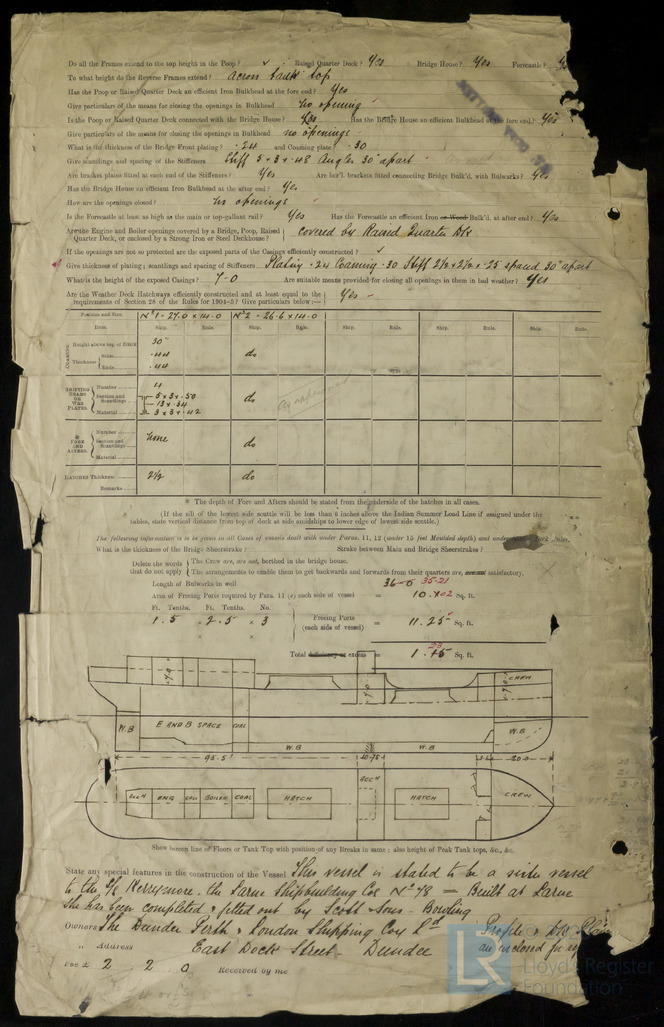 Do all the Frames extend to the top height in the Poop? Raised Quarter Deck? Yes Bridge House? Yes Forecastle?
To what height do the Reverse Frames extend? across tank top
Has the Poop or Raised Quarter Deck an efficient Iron Bulkhead at the fore end? Yes
Give particulars of the means for closing the openings in Bulkhead no opening
Is the Poop or Raised Quarter Deck connected with the Bridge House? Yes Has the Bridge House an efficient Bulkhead at the fore end? Yes
Give particulars of the means for closing the openings in Bulkhead no openings
What is the thickness of the Bridge Front plating? .24 and Coaming plate? .30
Give scantlings and spacing of the Stiffeners Stiff 5 x 3 x .48 Angles 30" apart
Are bracket plates fitted at each end of the Stiffeners? Yes Are hor'l. brackets fitted connecting Bridge Bulk'd. with Bulwarks? Yes
Has the Bridge House an efficient Iron Bulkhead at the after end? Yes
How are the openings closed? no openings
Is the Forecastle at least as high as the main or top-gallant rail? Yes Has the Forecastle an efficient Iron or Wood Bulk'd. at after end? Yes
Are the Engine and Boiler openings covered by a Bridge, Poop, Raised Quarter Deck, or enclosed by a Strong Iron or Steel Deckhouse? covered by Raised Quarter Dk
If the openings are not so protected are the exposed parts of the Casings efficiently constructed?
Give thickness of plating; scantlings and spacing of Stiffeners Plating .24 Coaming .30 Stiff 2½ x 2½ x .25 spaced 30" apart
What is the height of the exposed Casings? 7-0 Are suitable means provided for closing all openings in them in bad weather? Yes
Are the Weather Deck Hatchways efficiently constructed and at least equal to the requirements of Section 28 of the Rules for 1904-5? Give particulars below:— Yes
Position and Size. No 1 - 27.0 x 14.0 No 2 - 26.6 x 14.0
Item. Ship. Rule. Ship. Rule. Ship. Rule. Ship. Rule. Ship. Rule.
COAMING Height above top of DECK 30"
Thickness Sides .44 do
Ends .44
SHIFTING BEAMS OR WEB PLATES. Number 4
Section and Scantlings 5 x 3 x .50 do
13 x .34
Material 3 x 3 x .42
* FORE AND AFTERS. Number none
Section and Scantlings do
Material
HATCHES Thickness 2½ do
Remarks
* The depth of Fore and Afters should be stated from the underside of the hatches in all cases.
(If the sill of the lowest side scuttle will be less than 6 inches above the Indian Summer Load Line if assigned under the
tables, state vertical distance from top of deck at side amidships to lower edge of lowest side scuttle.)
The following information is to be given in all Cases of vessels dealt with under Paras. 11, 12 (under 15 feet Moulded depth) and
What is the thickness of the Bridge Sheerstrake? Strake between Main and Bridge Sheerstrakes?
Delete the words that do not apply
The Crew are, are not, berthed in the bridge house.
The arrangements to enable them to get backwards and forwards from their quarters are, are not satisfactory.
Length of Bulwarks in well 36-0 35-21
Area of Freeing Ports required by Para. 11 (e) each side of vessel = 10.x02 Sq. ft.
Ft. Tenths. Ft. Tenths. No.
1.5 x 2.5 x 3 Freeing Ports (each side of vessel) = 11.25 Sq. ft.
x x
Total deficiency or excess = 1. Sq. ft.
CREW
W.B E AND B SPACE COAL W.B W.B W.B
95.5' 10.75 20.0
ENG BOILER COAL HATCH ACC'N HATCH CREW
Show broken line of Floors or Tank Top with position of any Breaks in same; also height of Peak Tank tops, &c., &c.
State any special features in the construction of the Vessel This vessel is stated to be a sister vessel
to the S/S Kerrymore. the Larne Shipbuilding Cos No 78 — Built at Larne
She has been completed & fitted out by Scott & Sons - Bowling
Owners The Dundee Perth & London Shipping Coy Ld Profile & Dk Plan
" Address East Dock Street - Dundee are enclosed for
Fee £ 2 . 2 . 0 Received by me
LR Lloyd's Register
Foundation